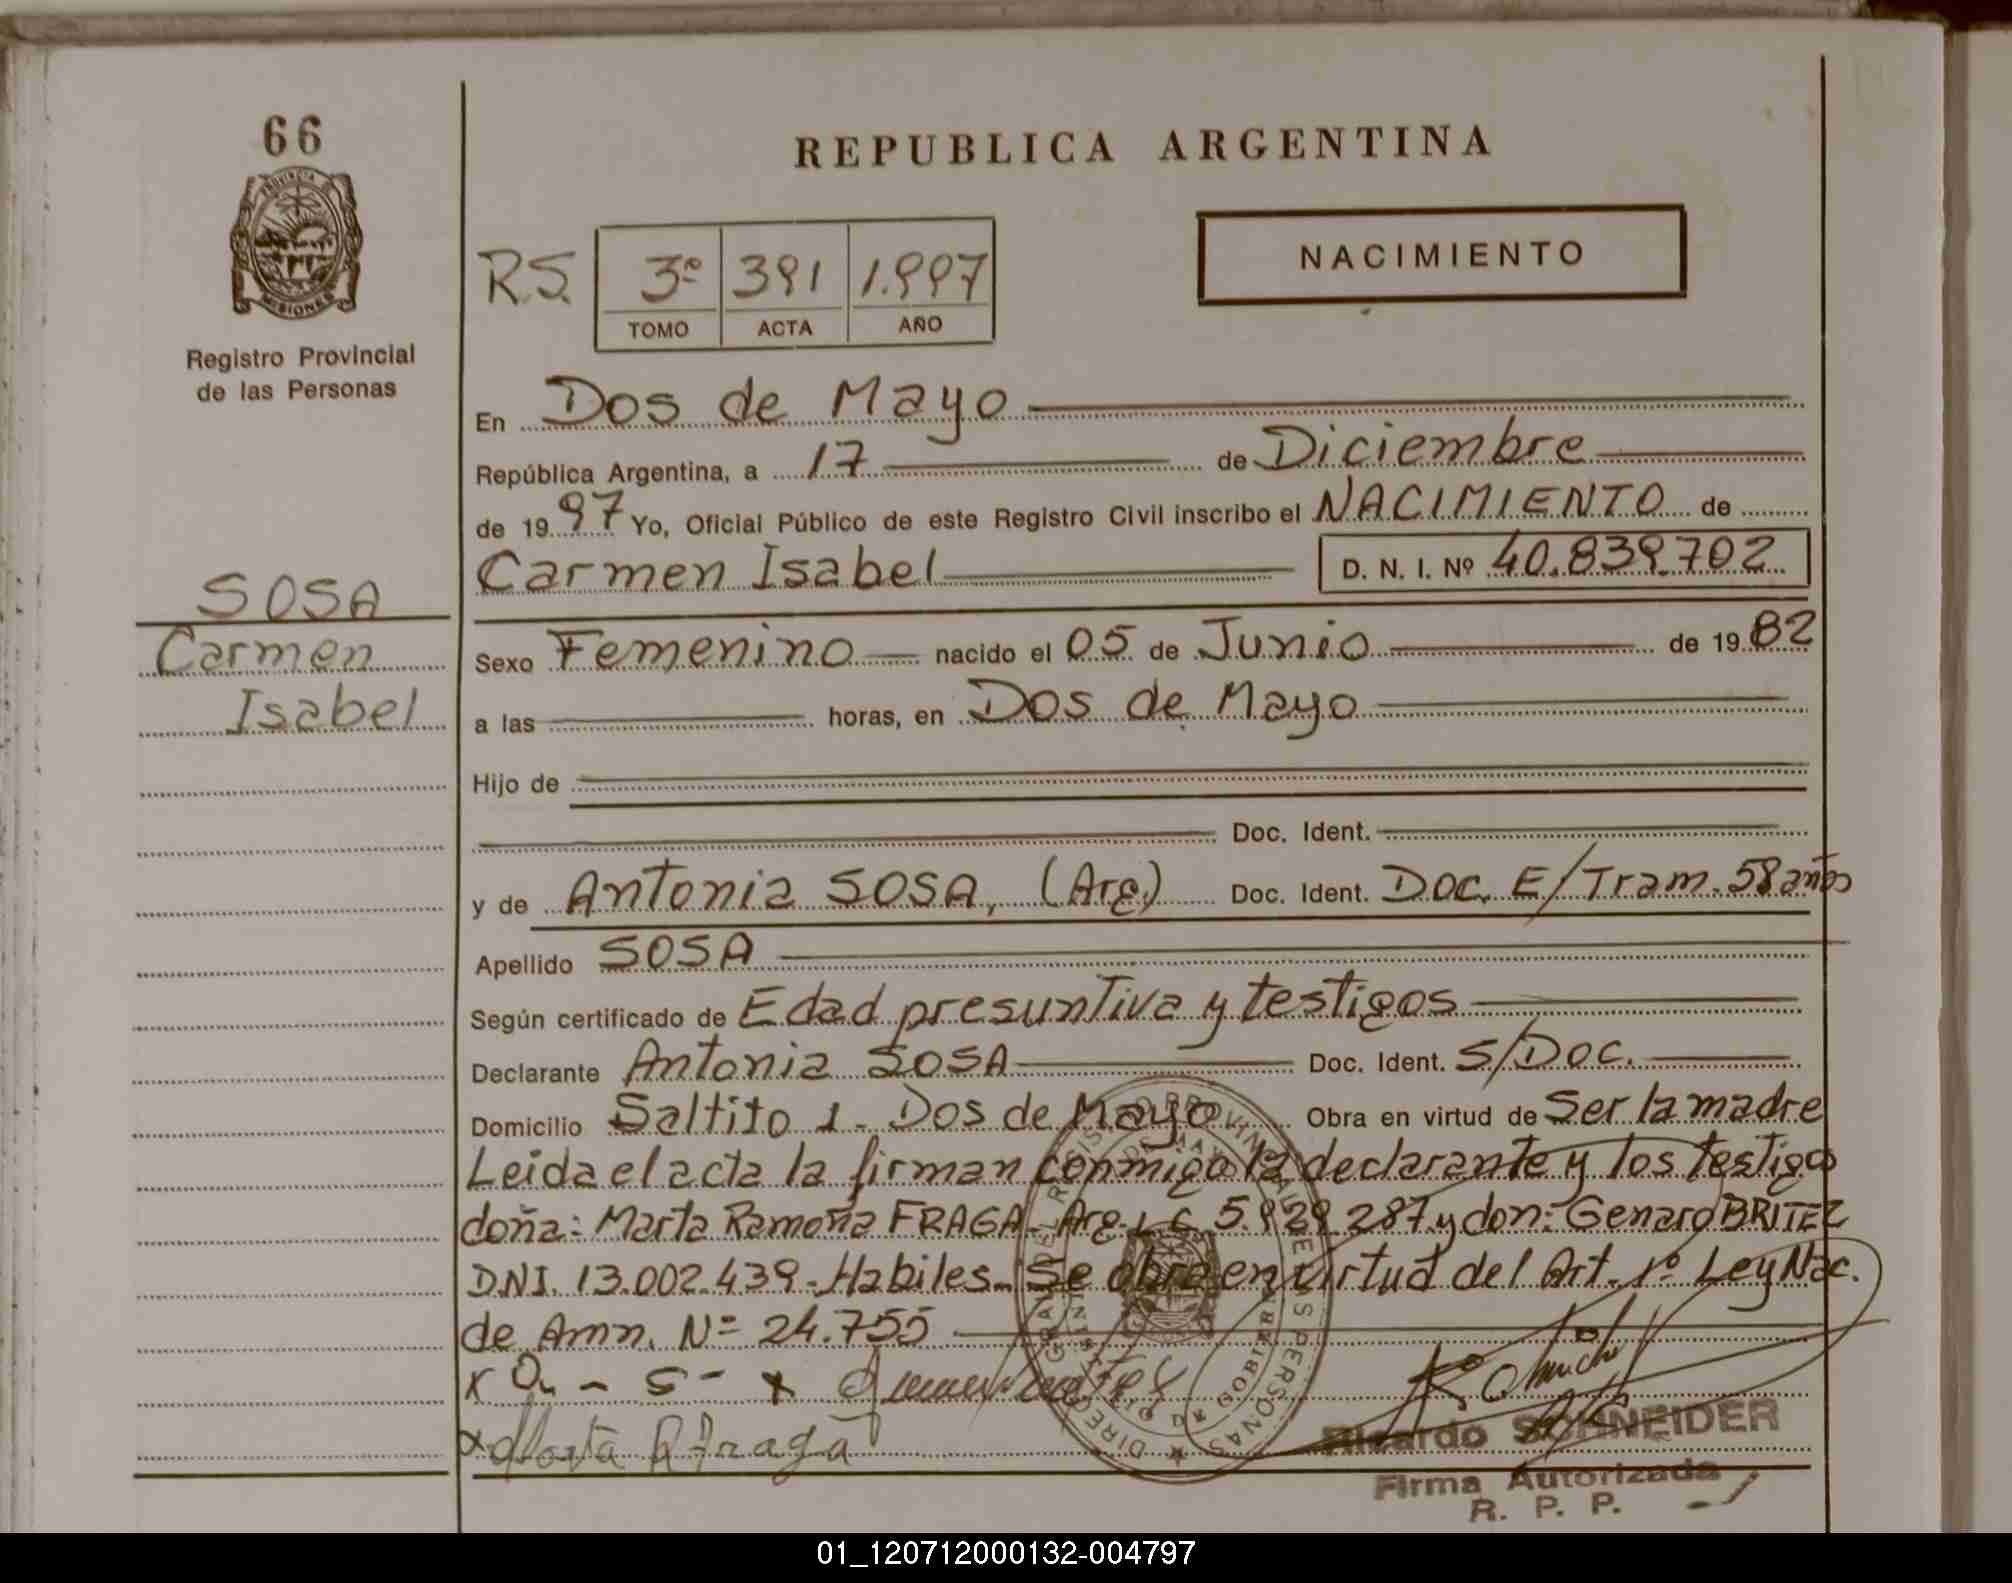 66
PROVINCIA DE
MISIONES
Registro Provincial
de las Personas
SOSA
Carmen
Isabel
REPUBLICA ARGENTINA
R.S. 3º 391 1.997
TOMO ACTA AÑO
NACIMIENTO
En Dos de Mayo
República Argentina, a 17 de Diciembre
de 1997 Yo, Oficial Público de este Registro Civil inscribo el NACIMIENTO de
Carmen Isabel D. N. I. Nº 40.839.702
Sexo Femenino nacido el 05 de Junio de 1982
a las horas, en Dos de Mayo
Hijo de
Doc. Ident.
y de Antonia SOSA, (Arg.) Doc. Ident. Doc. E/Tram. 58 años
Apellido SOSA
Según certificado de Edad presuntiva y testigos
Declarante Antonia SOSA Doc. Ident. S/Doc.
Domicilio Saltito 1 - Dos de Mayo Obra en virtud de Ser la madre
Leida el acta la firman conmigo la declarante y los testigos
doña: Marta Ramona FRAGA - Arg. L.C. 5.929.287 y don: Genaro BRITEZ
DNI. 13.002.439 - Habiles - Se obra en virtud del Art. 1º Ley Nac.
de Amn. Nº 24.755
Marta R Fraga
Ricardo SCHNEIDER
Firma Autorizada
R. P. P.
01_120712000132-004797